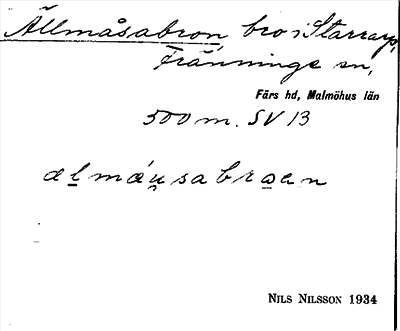 Ällmåsabron bro i Starrarp,
Tränninge sn,
Färs hd, Malmöhus län
500 m. SV 13
almáu̯sabroen
NILS NILSSON 1934